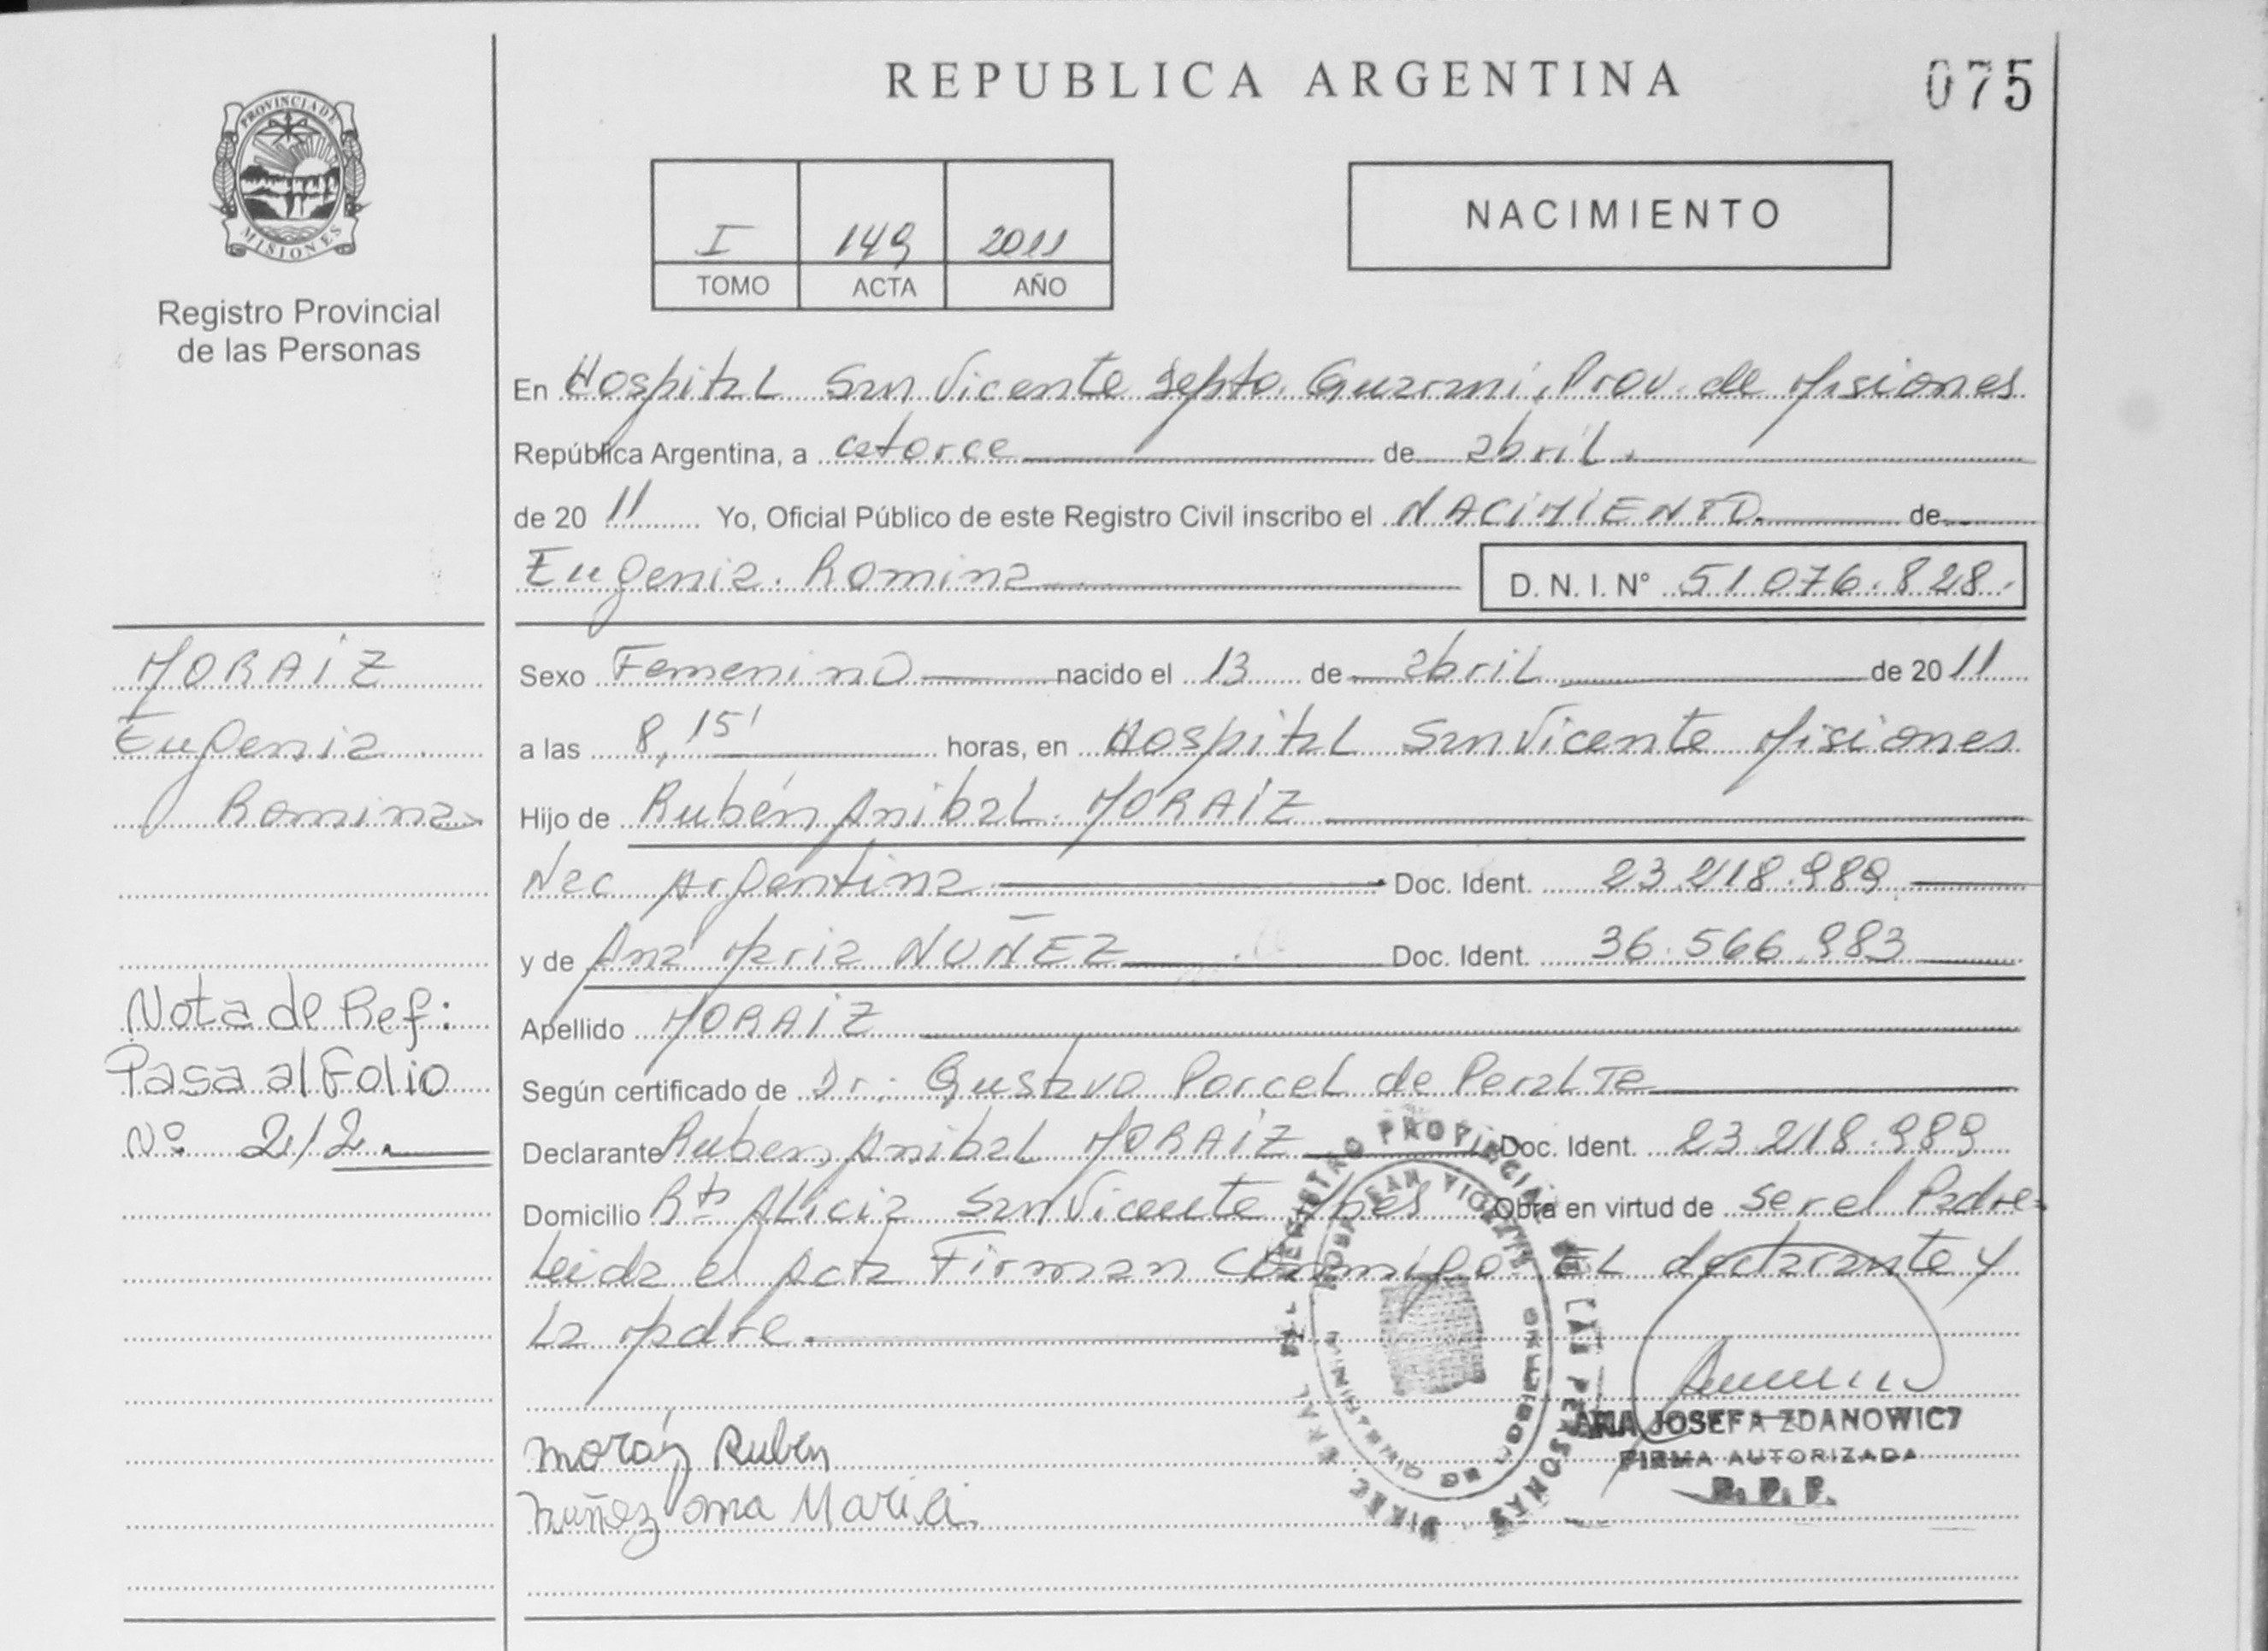 REPUBLICA ARGENTINA
075
PROVINCIA DE
MISIONES
Registro Provincial
de las Personas
I 149 2011
TOMO ACTA AÑO
NACIMIENTO
En Hospital San Vicente Depto. Guaraní, Prov. de Misiones
República Argentina, a catorce de abril.
de 2011 Yo, Oficial Público de este Registro Civil inscribo el NACIMIENTO de
Eugenia Romina D. N. I. N° 51.076.828.
Sexo Femenino nacido el 13 de abril de 2011
a las 8,15' horas, en Hospital San Vicente Misiones
Hijo de Rubén Anibal MORAIZ
Nac Argentina Doc. Ident. 23.218.989
y de Ana Maria NUÑEZ Doc. Ident. 36.566.983
Apellido MORAIZ
Según certificado de Dr. Gustavo Porcel de Peralta
Declarante Ruben Anibal MORAIZ Doc. Ident. 23.218.989
Domicilio Alicia San Vicente Mnes Obra en virtud de ser el Padre
Leida el Acta Firman Conmigo EL declarante y
La Madre.
Ruben
nuñez ana Maria
ANA JOSEFA ZDANOWICZ
FIRMA AUTORIZADA
R. P. P.
MORAIZ
Eugenia
Romina
Nota de Ref:
Pasa al Folio
Nº 212.